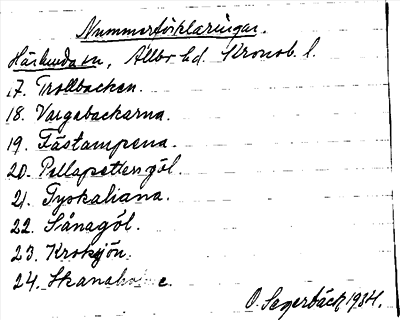 Nummerförklaringar.
Härlunda sn, Allbo hd. Kronob. l.
17. Trollbacken.
18. Vargabackarna.
19. Fästampena.
20. Pellapettersgöl.
21. Tyskaliana.
22. Sånagöl.
23. Kroksjön.
24.
O. Segerbäck 1934.